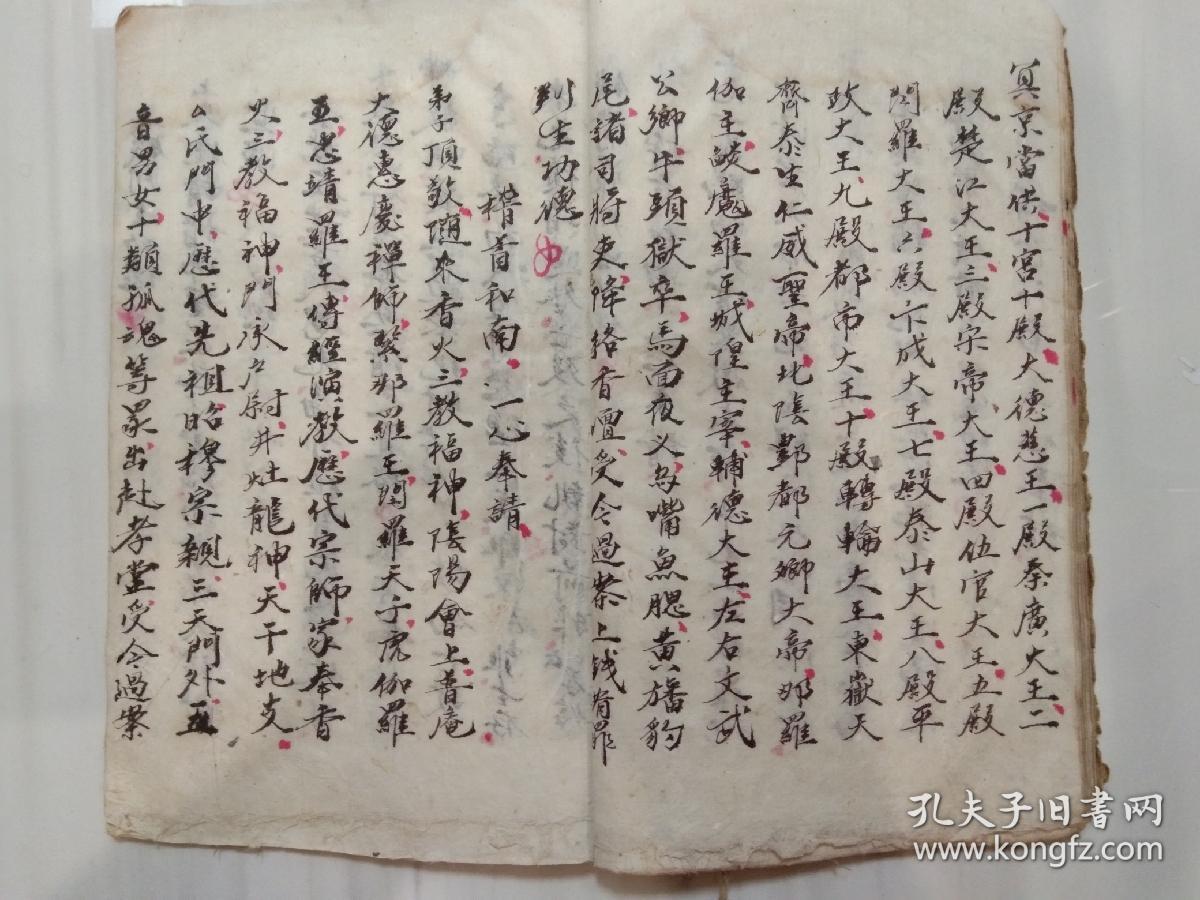 冥京當供十宮十殿大德慈王一殿秦廣大王二
殿楚江大王三殿宋帝大王四殿伍官大王五殿
閻羅大王六殿卞成大王七殿泰山大王八殿平
政大王九殿都帝大王十殿轉輪大王東嶽天
齊泰生仁威聖帝北陰酆都元卿大帝那羅
伽主鋑魔羅王城隍主宰輔德大王左右文武
公卿牛頭獄卒馬面夜义鸟嘴魚腮黄旛豹
尾諸司将吏降格香壇受今過茶上錢有罪
判生功德
稽首和南一心奉請
弟子頂敬随來香火三教福神陰陽會上普庵
大德惠慶禪師緊那羅王閻羅天子虎伽羅
五岳靖羅王傅經演教歷代宗師家奉香
火三教福神門承户尉井灶龍神天干地支
公氏門中歷代先祖昭穆宗親三天門外五
音男女十類孤魂等衆出赴孝堂受今過茶
孔夫子旧书网
www.kongfz.com